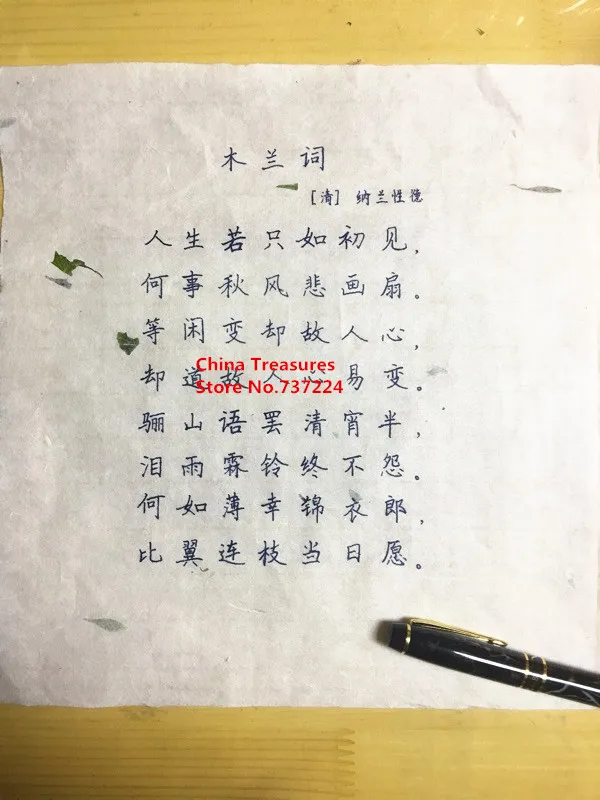 木兰词
[清] 纳兰性德
人生若只如初见,
何事秋风悲画扇。
等闲变却故人心,
却道故人心易变。
China Treasures
Store No.737224
骊山语罢清宵半,
泪雨霖铃终不怨。
何如薄幸锦衣郎,
比翼连枝当日愿。